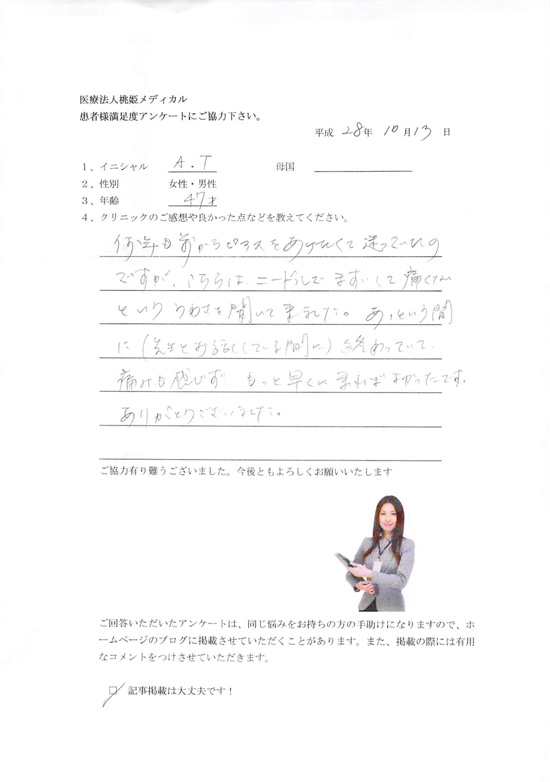 医療法人桃姫メディカル
患者様満足度アンケートにご協力下さい。
平成 28年 10月13日
1、イニシャル A.T 母国
2、性別 女性・男性
3、年齢 47才
4、クリニックのご感想や良かった点などを教えてください。
何年も前からピアスをあけたくて迷っていたの
ですが、こちらは、ニードルで ますいして 痛くない
という うわさを聞いて来ました。 あっという間
に(先生とお話ししている間に)終わっていて、
痛みも感じず もっと早くに来ればよかったです。
ありがとうございました。
ご協力有り難うございました。今後ともよろしくお願いいたします
ご回答いただいたアンケートは、同じ悩みをお持ちの方の手助けになりますので、ホ
ームページのブログに掲載させていただくことがあります。また、掲載の際には有用
なコメントをつけさせていただきます。
記事掲載は大丈夫です！